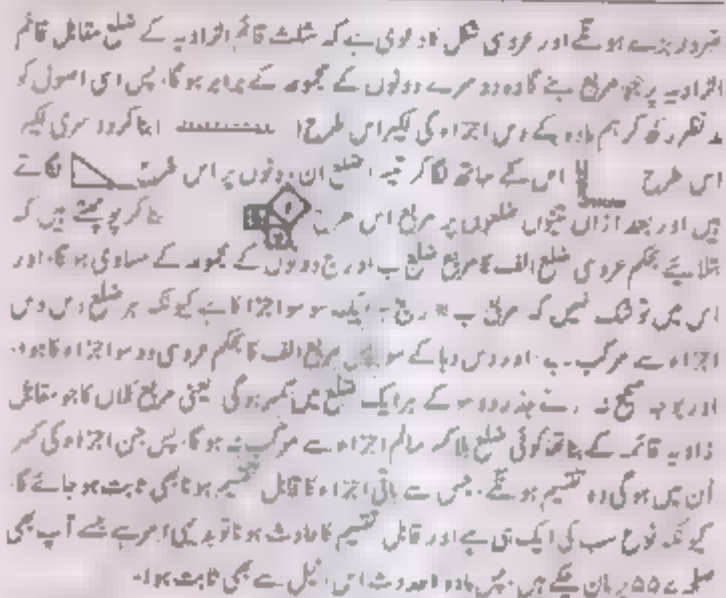 ضرور بڑے ہونگے اور عروسی شکل کا دعویٰ ہے کہ مثلث قائم الزاویہ کے ضلع مقابل قائم
الزاویہ پر جو مربع بنے گا وہ دوسرے دونوں کے مجموعہ کے برابر ہوگا، پس اسی اصول کو
مد نظر رکھ کر ہم مادہ کے دس اجزاء کی لکیر اس طرح بنا کر دوسری لکیر
اس طرح اس کے ساتھ لگا کر تیسرا ضلع ان دونوں پر اس طرح لگاتے
ہیں اور بعد ازاں تینوں ضلعوں پر مربع اس طرح بنا کر پوچھتے ہیں کہ
بتلائیے بحکم عروسی ضلع الف کا مربع ضلع ب اور ج دونوں کے مجموعہ کے مساوی ہوگا، اور
اس میں تو شک نہیں کہ مربع ب اور ج ایک سو سو اجزا کا ہے کیونکہ ہر ضلع دس دس
اجزاء سے مرکب ہے اور دس دہا کے سو پس مربع الف کا بحکم عروسی دو سو اجزاء کا ہوا۔
اور بوجہ صحیح نہ ہونے جذر دو سو کے ہر ایک ضلع میں کسر ہوگی یعنی مربع کلاں کا جو مقابل
زاویہ قائمہ کے بنا تھا کوئی ضلع بلا کسر سالم اجزاء سے مرکب نہ ہوگا۔ پس جن اجزاء کی کسر
اُن میں ہوگی وہ تقسیم ہونگے، جس سے باقی اجزاء کا قابل تقسیم ہونا بھی ثابت ہو جائے گا
کیونکہ نوع سب کی ایک ہی ہے اور قابل تقسیم کا حادث ہونا تو بدیہی امر ہے جسے آپ بھی
صفحہ ۵۵ پر مان چکے ہیں، پس مادہ کا حدوث اس دلیل سے بھی ثابت ہوا۔